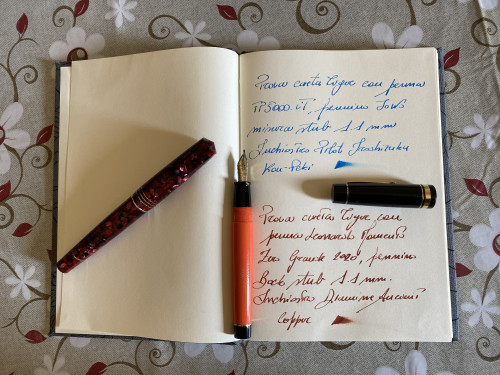 Prova carta Cigne con penna
pennino Jowo
minosa stub 1.1 mm
Inchiostro Pilot Iroshizuku
Kon-Peki
Prova carta Cigne con
penna Leonardo Momento
Zero Grande 2020, pennino
Bock stub 1.1 mm.
Inchiostro Diamine Ancient
Copper